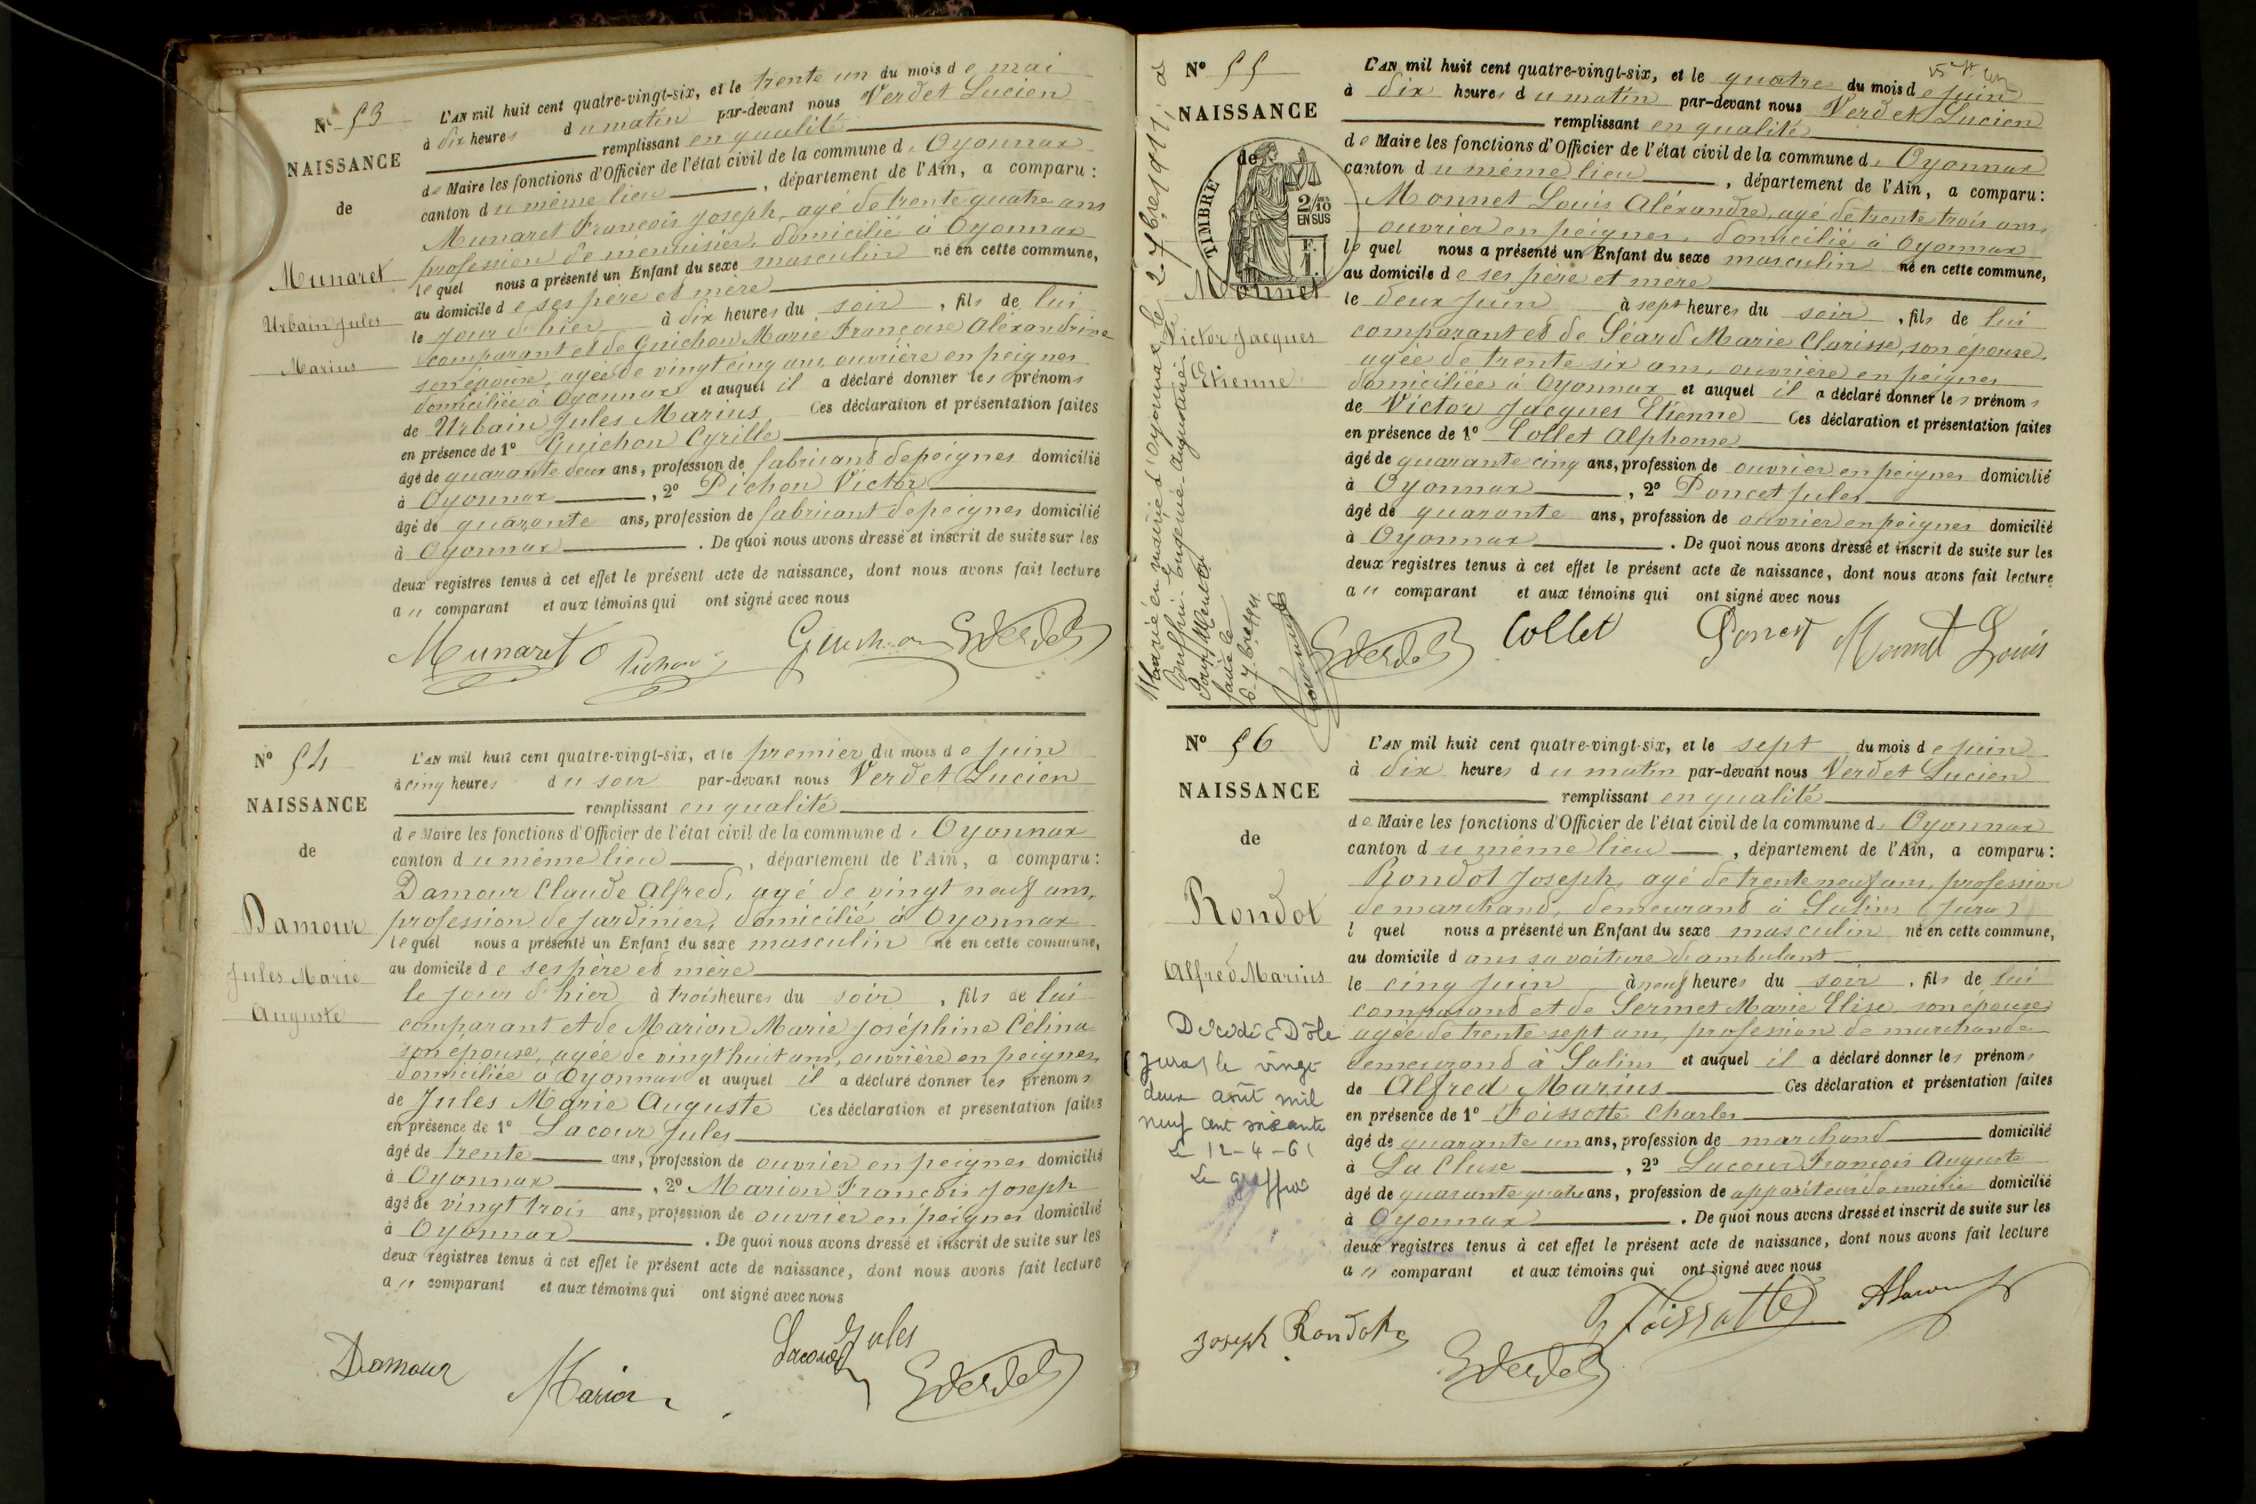 N° 53
NAISSANCE
de
Munaret
Urbain Jules
Marius
L'AN mil huit cent quatre-vingt-six, et le trente un du mois de mai
à dix heures du matin par-devant nous Verdet Lucien
remplissant en qualité
de Maire les fonctions d'Officier de l'état civil de la commune d' Oyonnax
canton du même lieu, département de l'Ain, a comparu:
Munaret François Joseph, agé de trente quatre ans
profession de menuisier, domicilié à Oyonnax
lequel nous a présenté un Enfant du sexe masculin né en cette commune,
au domicile de ses père et mère
le jour d'hier à dix heures du soir, fils de lui
comparant et de Guichon Marie Françoise Aléxandrine
son épouse, agée de vingt cinq ans, ouvrière en peignes
domiciliée à Oyonnax et auquel il a déclaré donner les prénoms
de Urbain Jules Marius Ces déclaration et présentation faites
en présence de 1° Guichon Cyrille
âgé de quarante deux ans, profession de fabricant de peignes domicilié
à Oyonnax, 2° Pichon Victor
âgé de quarante ans, profession de fabricant de peignes domicilié
à Oyonnax. De quoi nous avons dressé et inscrit de suite sur les
deux registres tenus à cet effet le présent acte de naissance, dont nous avons fait lecture
au comparant et aux témoins qui ont signé avec nous
Munaret Pichon Guichon Verdet
N° 54
NAISSANCE
de
Damour
Jules Marie
Auguste
L'AN mil huit cent quatre-vingt-six, et le premier du mois de juin
à cinq heures du soir par-devant nous Verdet Lucien
remplissant en qualité
de Maire les fonctions d'Officier de l'état civil de la commune d' Oyonnax
canton du même lieu, département de l'Ain, a comparu:
Damour Claude Alfred, agé de vingt neuf ans,
profession de jardinier, domicilié à Oyonnax
lequel nous a présenté un Enfant du sexe masculin né en cette commune,
au domicile de ses père et mère
le jour d'hier à trois heures du soir, fils de lui
comparant et de Marion Marie Joséphine Célina
son épouse, agée de vingt huit ans, ouvrière en peignes,
domiciliée à Oyonnax et auquel il a déclaré donner les prénoms
de Jules Marie Auguste Ces déclaration et présentation faites
en présence de 1° Lacour Jules
âgé de trente ans, profession de ouvrier en peignes domicilié
à Oyonnax, 2° Marion François Joseph
âgé de vingt trois ans, profession de ouvrier en peignes domicilié
à Oyonnax. De quoi nous avons dressé et inscrit de suite sur les
deux registres tenus à cet effet le présent acte de naissance, dont nous avons fait lecture
au comparant et aux témoins qui ont signé avec nous
Damour Marion Lacour Jules Verdet
N° 55
NAISSANCE
de
TIMBRE
2/10
EN SUS
F.
1
Monnet
Victor Jacques
Etienne
Marié en mairie d'Oyonnax le 2 7bre 1911, à
Eugenie-Augustine
L'AN mil huit cent quatre-vingt-six, et le quatre du mois de juin
à dix heures du matin par-devant nous Verdet Lucien
remplissant en qualité
de Maire les fonctions d'Officier de l'état civil de la commune d' Oyonnax
canton du même lieu, département de l'Ain, a comparu:
Monnet Louis Aléxandre, agé de trente trois ans,
ouvrier en peignes, domicilié à Oyonnax
lequel nous a présenté un Enfant du sexe masculin né en cette commune,
au domicile de ses père et mère
le deux juin à sept heures du soir, fils de lui
comparant et de Géard Marie Clarisse, son épouse,
agée de trente six ans, ouvrière en peignes
domiciliée à Oyonnax et auquel il a déclaré donner les prénoms
de Victor Jacques Etienne Ces déclaration et présentation faites
en présence de 1° Collet Alphonse
âgé de quarante cinq ans, profession de ouvrier en peignes domicilié
à Oyonnax, 2° Poncet Jules
âgé de quarante ans, profession de ouvrier en peignes domicilié
à Oyonnax. De quoi nous avons dressé et inscrit de suite sur les
deux registres tenus à cet effet le présent acte de naissance, dont nous avons fait lecture
au comparant et aux témoins qui ont signé avec nous
Verdet Collet Poncet Monnet Louis
N° 56
NAISSANCE
de
Rondot
Alfred Marius
Décédé à Dôle
(Jura) le vingt
deux août mil
neuf cent soixante
Le 12-4-61
Le greffier
L'AN mil huit cent quatre-vingt-six, et le sept du mois de juin
à dix heures du matin par-devant nous Verdet Lucien
remplissant en qualité
de Maire les fonctions d'Officier de l'état civil de la commune d' Oyonnax
canton du même lieu, département de l'Ain, a comparu:
Rondot Joseph, agé de trente neuf ans, profession
de marchand, demeurant à Salins (Jura)
l quel nous a présenté un Enfant du sexe masculin né en cette commune,
au domicile dans sa voiture d'ambulant
le cinq juin à neuf heures du soir, fils de lui
comparant et de Sermet Marie Elise, son épouse
agée de trente sept ans, profession de marchande
demeurant à Salins et auquel il a déclaré donner les prénoms
de Alfred Marius Ces déclaration et présentation faites
en présence de 1° Foissotte Charles
âgé de quarante un ans, profession de marchand domicilié
à La Cluse, 2° Lacour François Auguste
âgé de quarante quatre ans, profession de appariteur de mairie domicilié
à Oyonnax. De quoi nous avons dressé et inscrit de suite sur les
deux registres tenus à cet effet le présent acte de naissance, dont nous avons fait lecture
au comparant et aux témoins qui ont signé avec nous
Joseph Rondot Verdet Foissotte ALacour